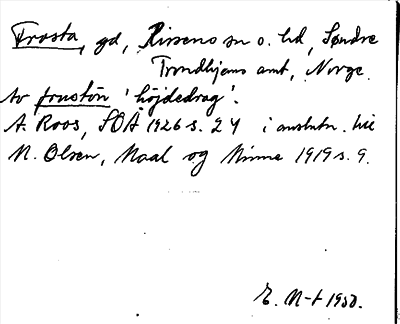 Frosta, gd, Rissens sn o. hd, Søndre
Trondhjems amt, Norge.
Av frustōn 'höjdedrag'.
A. Roos, SOÅ 1926 s. 24 i anslutn. till
M. Olsen, Maal og Minne 1919 s. 9.
E. N-t 1950.